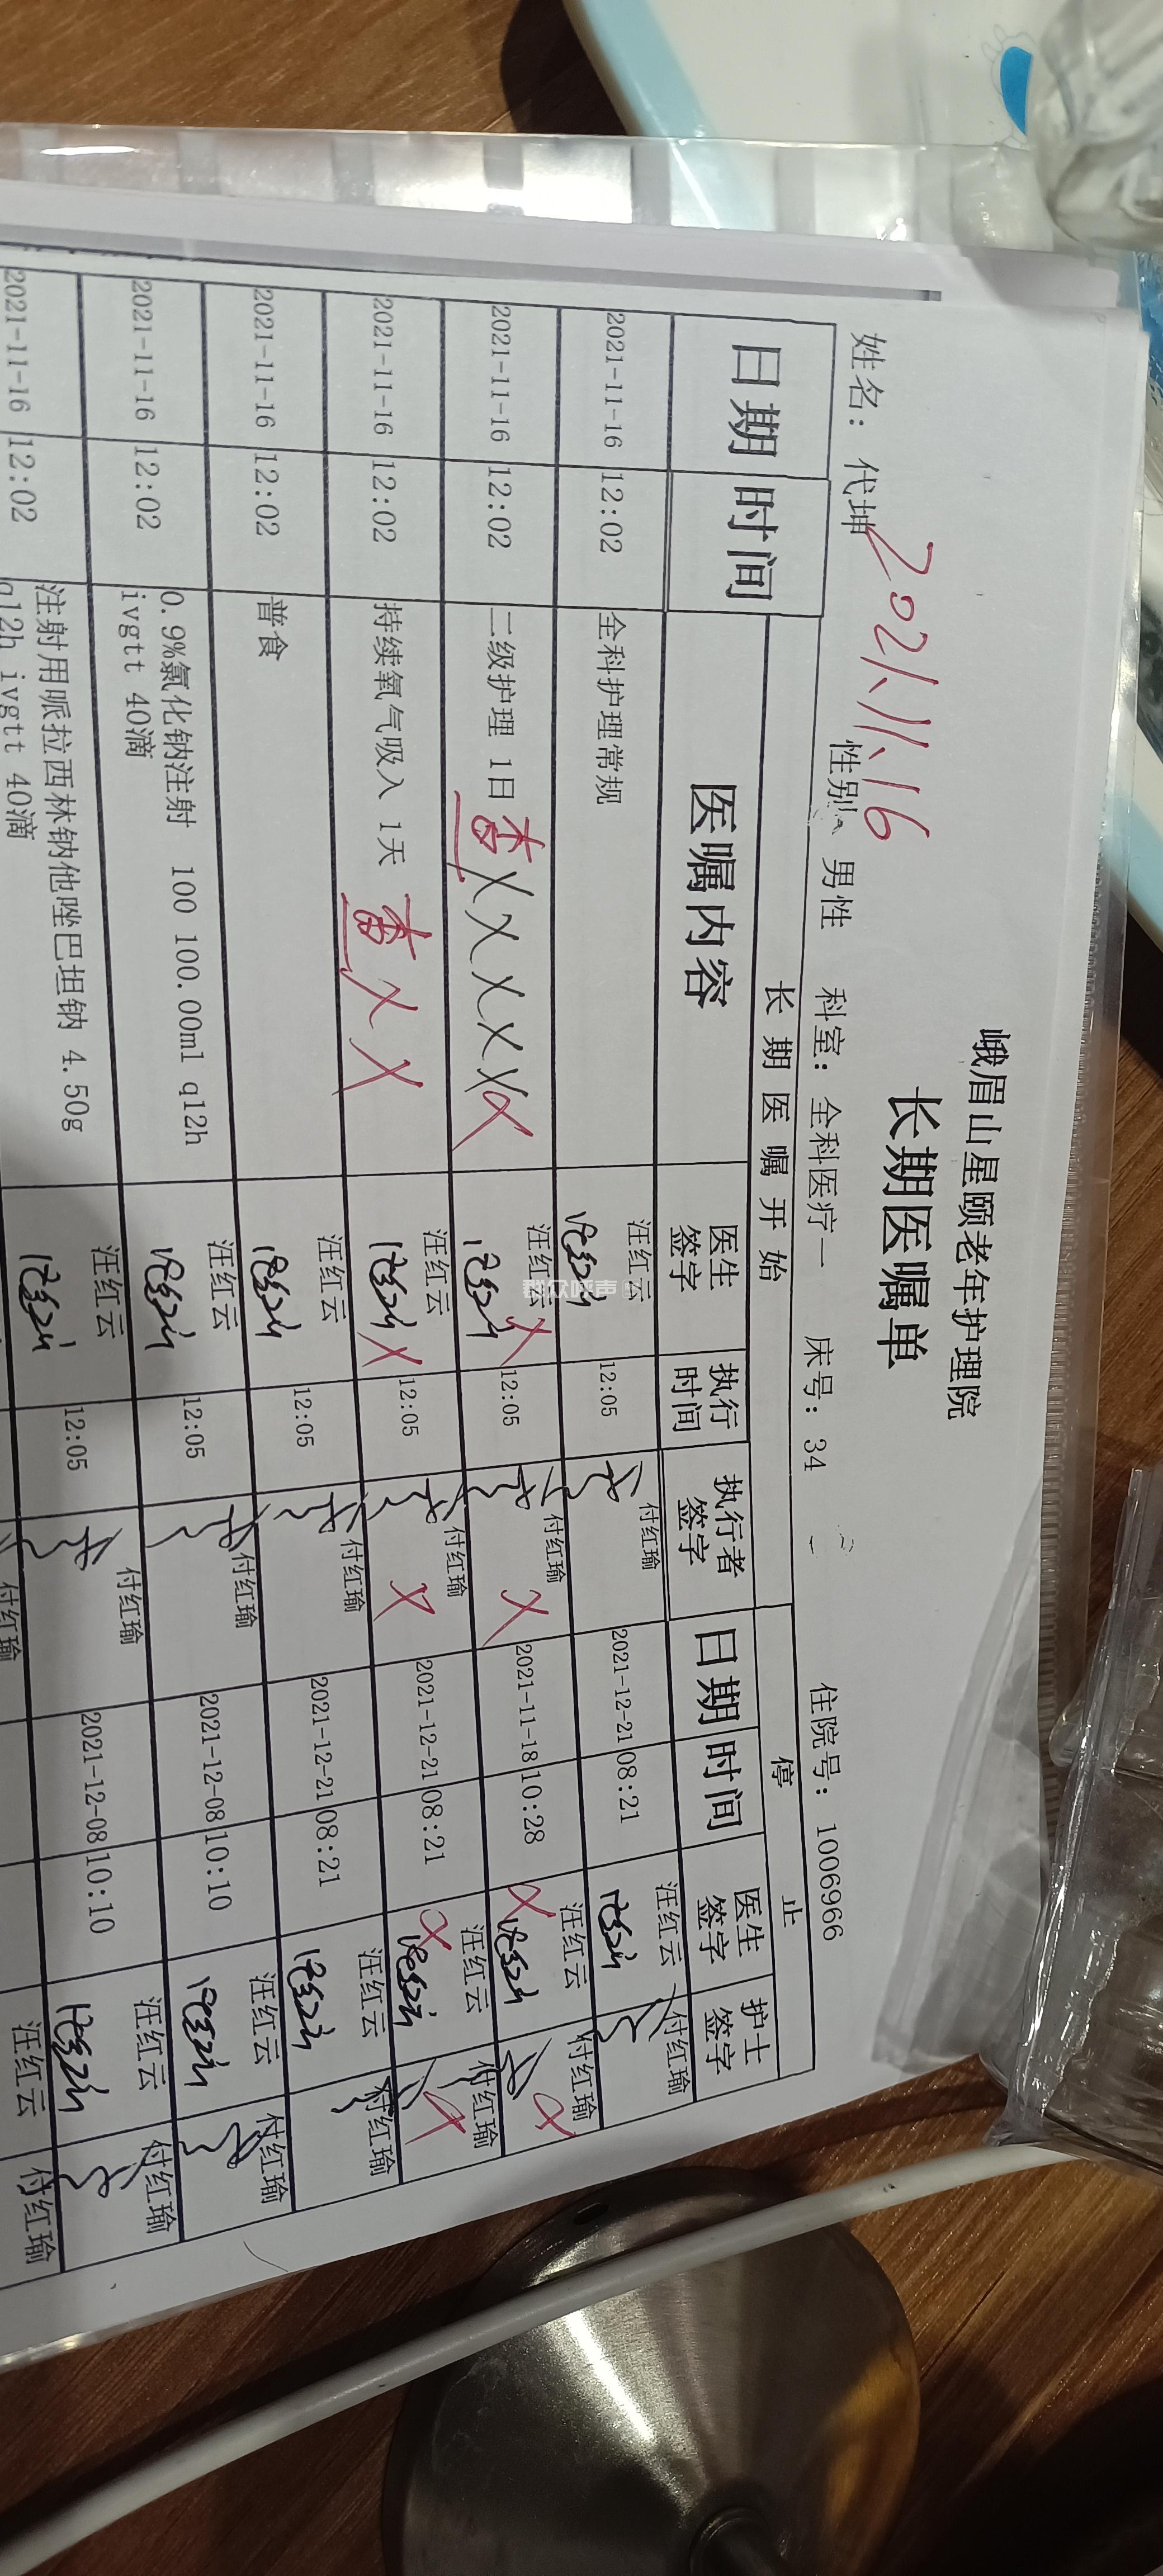 峨眉山星颐老年护理院
长期医嘱单
姓名: 代坤 性别: 男性 科室: 全科医疗一 床号: 34 住院号: 1006966
2021.11.16
长期医嘱开始 停止
日期 时间 医嘱内容 医生签字 执行时间 执行者签字 日期 时间 医生签字 护士签字
2021-11-16 12:02 全科护理常规 汪红云 12:05 付红瑜 2021-12-21 08:21 汪红云 付红瑜
2021-11-16 12:02 二级护理 1日 查 X X X X X X 汪红云 X 12:05 付红瑜 X 2021-11-18 10:28 X 汪红云 付红瑜 X
2021-11-16 12:02 持续氧气吸入 1天 查 X X 汪红云 X 12:05 付红瑜 X 2021-12-21 08:21 X 汪红云 付红瑜 X
2021-11-16 12:02 普食 汪红云 12:05 付红瑜 2021-12-21 08:21 汪红云 付红瑜
2021-11-16 12:02 0.9%氯化钠注射 100 100.00ml q12h 汪红云 12:05 付红瑜 2021-12-08 10:10 汪红云 付红瑜
ivgtt 40滴
2021-11-16 12:02 注射用哌拉西林钠他唑巴坦钠 4.50g 汪红云 12:05 付红瑜 2021-12-08 10:10 汪红云 付红瑜
q12h ivgtt 40滴
付红瑜 汪红云 付红瑜
群众呼声